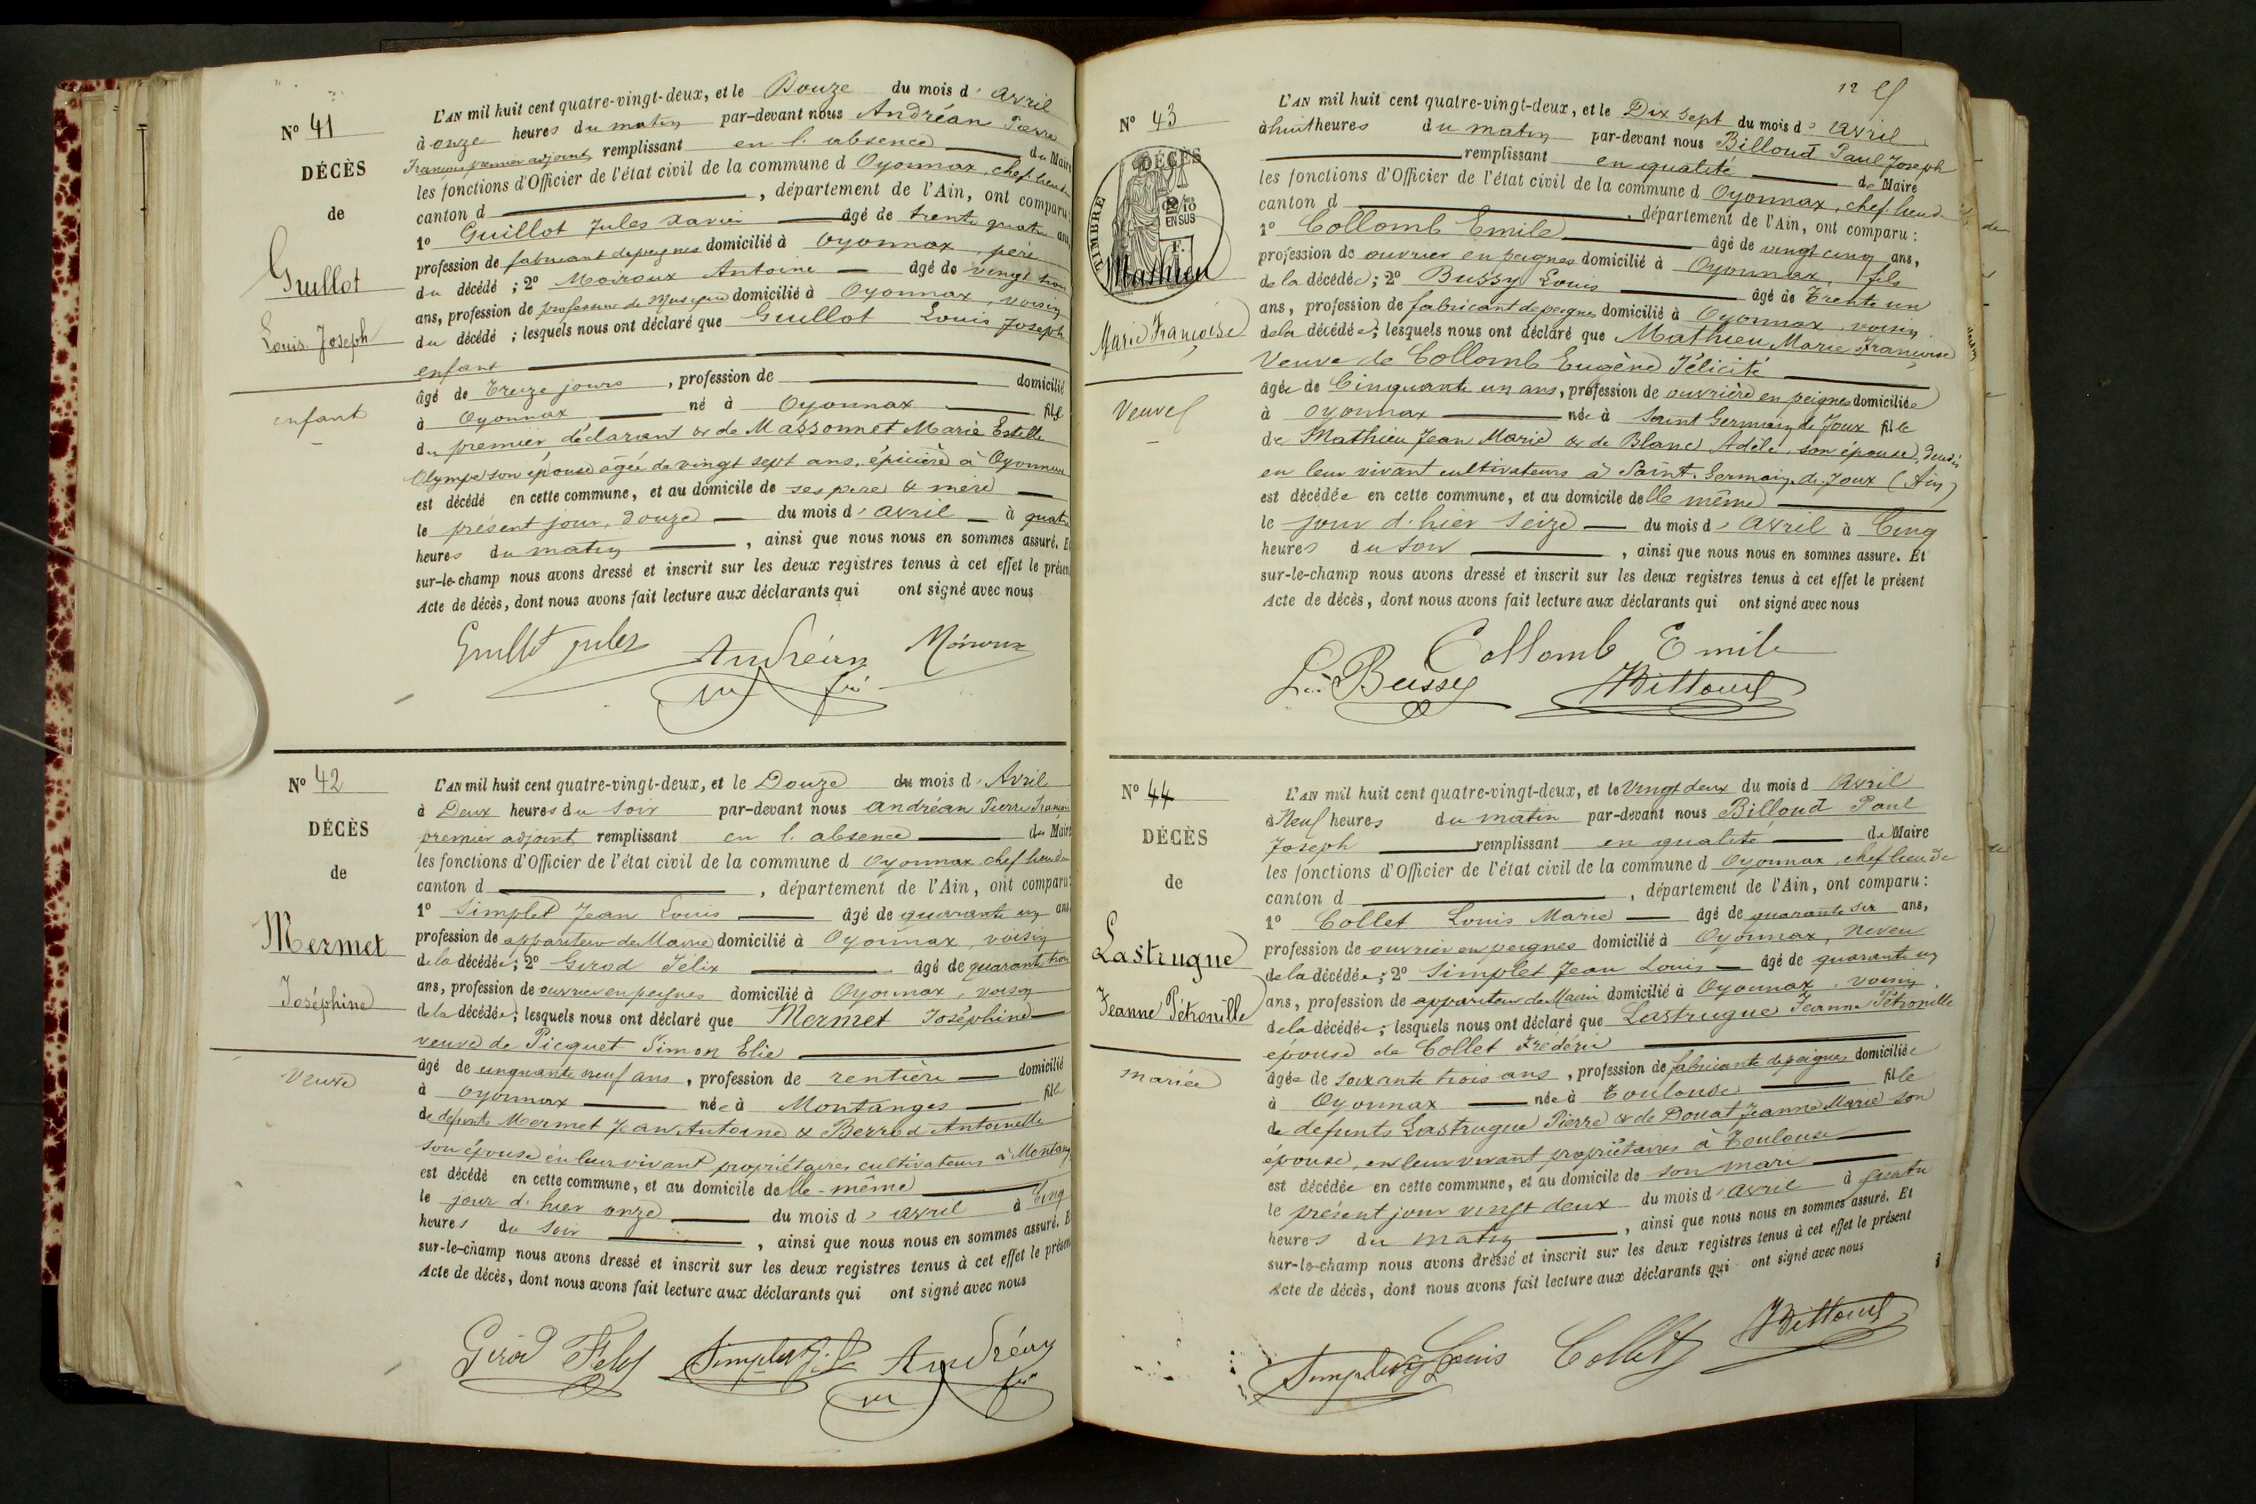 N° 41
DÉCÈS
de
Guillot
Louis Joseph
enfant
L'AN mil huit cent quatre-vingt-deux, et le Douze du mois d' avril
à onze heures du matin par-devant nous Andréan Pierre
François premier adjoint, remplissant en l'absence du Maire
les fonctions d'Officier de l'état civil de la commune d Oyonnax, chef lieu de
canton d , département de l'Ain, ont comparu:
1° Guillot Jules Xavier âgé de trente quatre ans,
profession de fabricant de peignes domicilié à Oyonnax, père
du décédé ; 2° Moiroux Antoine âgé de vingt trois
ans, profession de professeur de Musique domicilié à Oyonnax, voisin
du décédé ; lesquels nous ont déclaré que Guillot Louis Joseph
enfant
âgé de Treize jours , profession de domicilié
à Oyonnax né à Oyonnax fils
du premier déclarant & de Massonnet Marie Estelle
Olympe son épouse âgée de vingt sept ans, épicière à Oyonnax
est décédé en cette commune, et au domicile de ses père & mère
le présent jour, douze du mois d' avril à quatre
heures du matin , ainsi que nous nous en sommes assuré. Et
sur-le-champ nous avons dressé et inscrit sur les deux registres tenus à cet effet le présent
Acte de décès, dont nous avons fait lecture aux déclarants qui ont signé avec nous
Guillot jules Andréan Moiroux
N° 42
DÉCÈS
de
Mermet
Joséphine
Veuve
L'AN mil huit cent quatre-vingt-deux, et le Douze du mois d' Avril
à Deux heures du soir par-devant nous andréan Pierre François
premier adjoint remplissant en l'absence du Maire
les fonctions d'Officier de l'état civil de la commune d Oyonnax chef lieu de
canton d , département de l'Ain, ont comparu:
1° Simplet Jean Louis âgé de quarante un ans
profession de appariteur de Mairie domicilié à Oyonnax, voisin
de la décédée ; 2° Girod Félix âgé de quarante trois
ans, profession de ouvrier en peignes domicilié à Oyonnax, voisin
de la décédée ; lesquels nous ont déclaré que Mermet Joséphine
veuve de Picquet Simon Elie
âgé de cinquante neuf ans , profession de rentière domicilié
à Oyonnax née à Montanges fille
de défunts Mermet Jean Antoine & Berrod Antoinette
son épouse en leur vivant propriétaires cultivateurs à Montanges
est décédé en cette commune, et au domicile de lle-même
le jour d'hier onze du mois d' avril à Cinq
heures du soir , ainsi que nous nous en sommes assuré. Et
sur-le-champ nous avons dressé et inscrit sur les deux registres tenus à cet effet le présent
Acte de décès, dont nous avons fait lecture aux déclarants qui ont signé avec nous
Girod Felix Simplet J. L. Andréan
12
N° 43
DÉCÈS
TIMBRE
2/10
EN SUS
F.
Mathieu
Marie Françoise
Veuve
L'AN mil huit cent quatre-vingt-deux, et le Dix sept du mois d' avril
à huit heures du matin par-devant nous Billoud Paul Joseph
remplissant en qualité de Maire
les fonctions d'Officier de l'état civil de la commune d Oyonnax, chef lieu de
canton d , département de l'Ain, ont comparu :
1° Collomb Emile âgé de vingt cinq ans,
profession de ouvrier en peignes domicilié à Oyonnax, fils
de la décédée ; 2° Bussy Louis âgé de Trente un
ans, profession de fabricant de peignes domicilié à Oyonnax, voisin
de la décédée ; lesquels nous ont déclaré que Mathieu Marie Françoise
Veuve de Collomb Eugène Félicité
âgée de Cinquante un ans, profession de ouvrière en peignes domiciliée
à Oyonnax née à Saint Germain de Joux fille
de Mathieu Jean Marie & de Blanc Adèle, son épouse, décédés
en leur vivant cultivateurs à Saint-Germain de Joux (Ain)
est décédée en cette commune, et au domicile de lle même
le jour d'hier Seize du mois d' avril à Cinq
heures du soir , ainsi que nous nous en sommes assuré. Et
sur-le-champ nous avons dressé et inscrit sur les deux registres tenus à cet effet le présent
Acte de décès, dont nous avons fait lecture aux déclarants qui ont signé avec nous
Collomb Emile
L. Bussy Billoud
N° 44
DÉCÈS
de
Lastrugue
Jeanne Pétronille
mariée
L'AN mil huit cent quatre-vingt-deux, et le Vingt deux du mois d avril
à Neuf heures du matin par-devant nous Billoud Paul
Joseph remplissant en qualité de Maire
les fonctions d'Officier de l'état civil de la commune d Oyonnax, chef lieu de
canton d , département de l'Ain, ont comparu :
1° Collet Louis Marie âgé de quarante six ans,
profession de ouvrier en peignes domicilié à Oyonnax, neveu
de la décédée ; 2° Simplet Jean Louis âgé de quarante un
ans, profession de appariteur de Mairie domicilié à Oyonnax, voisin
de la décédée ; lesquels nous ont déclaré que Lastrugue Jeanne Pétronille
épouse de Collet Frédéric
âgée de soixante trois ans , profession de fabricante de peignes domiciliée
à Oyonnax née à Toulouse fille
de défunts Lastrugue Pierre & de Douat Jeanne Marie son
épouse, en leur vivant propriétaires à Toulouse
est décédée en cette commune, et au domicile de son mari
le présent jour vingt deux du mois d' avril à quatre
heures du matin , ainsi que nous nous en sommes assuré. Et
sur-le-champ nous avons dressé et inscrit sur les deux registres tenus à cet effet le présent
Acte de décès, dont nous avons fait lecture aux déclarants qui ont signé avec nous
Simplet J. L. Louis Collet Billoud